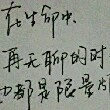 在生命中
再无聊的时
也都是限量版